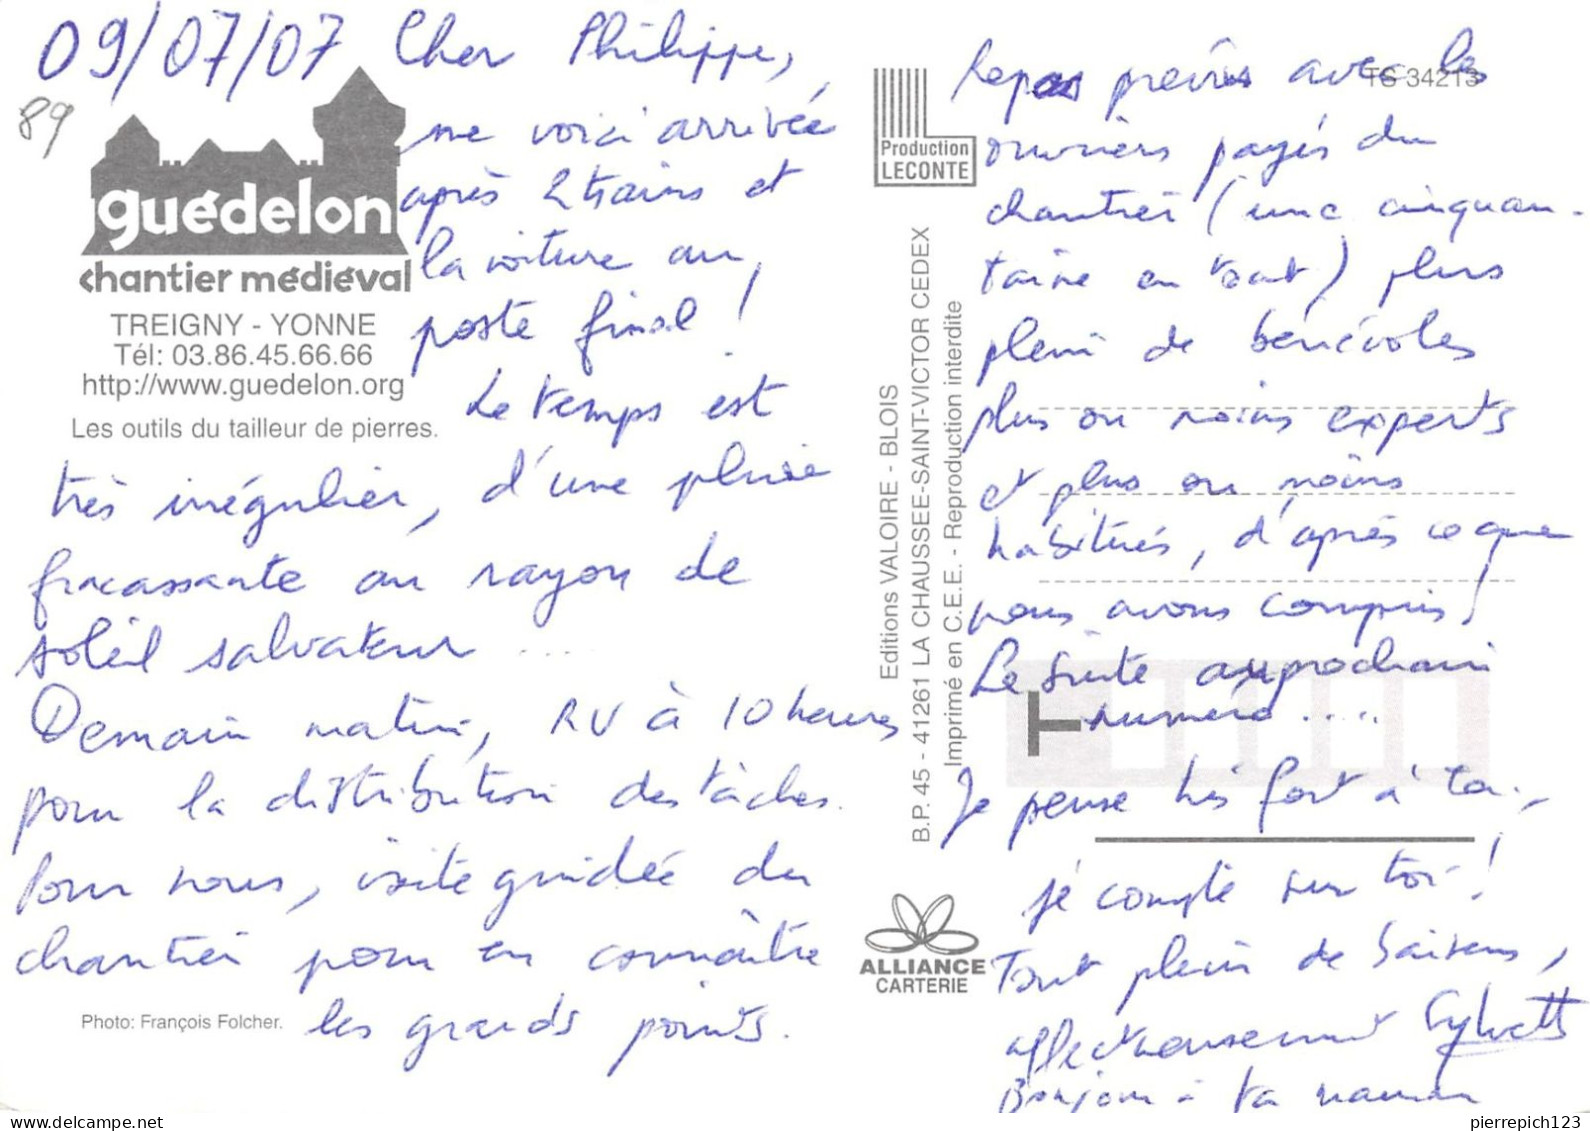 09/07/07
89
guédelon
chantier médiéval
TREIGNY - YONNE
Tél: 03.86.45.66.66
http://www.guedelon.org
Les outils du tailleur de pierres.
Cher Philippe,
me voici arrivée
après 2 trains et
la voiture au
poste final !
Le temps est
très irrégulier, d'une pluie
fracassante au rayon de
soleil salvateur .....
Demain matin, RV à 10 heures
pour la distribution des tâches.
Pour nous, visite guidée du
chantier pour en connaître
les grands points.
Photo: François Folcher.
Production
LECONTE
Editions VALOIRE - BLOIS
B.P. 45 - 41261 LA CHAUSSEE-SAINT-VICTOR CEDEX
Imprimé en C.E.E. - Reproduction interdite
ALLIANCE
CARTERIE
TS 34213
Repas prévus avec les
ouvriers payés du
chantier (une cinquan-
taine en tout) plus
plein de bénévoles
plus ou moins experts
et plus ou moins
habitués, d'après ce que
nous avons compris !
La suite au prochain
numéro .....
Je pense très fort à toi,
je compte sur toi !
Tout plein de baisers,
affectueusement Sylvette
Bonjour à ta maman
pierrepich123